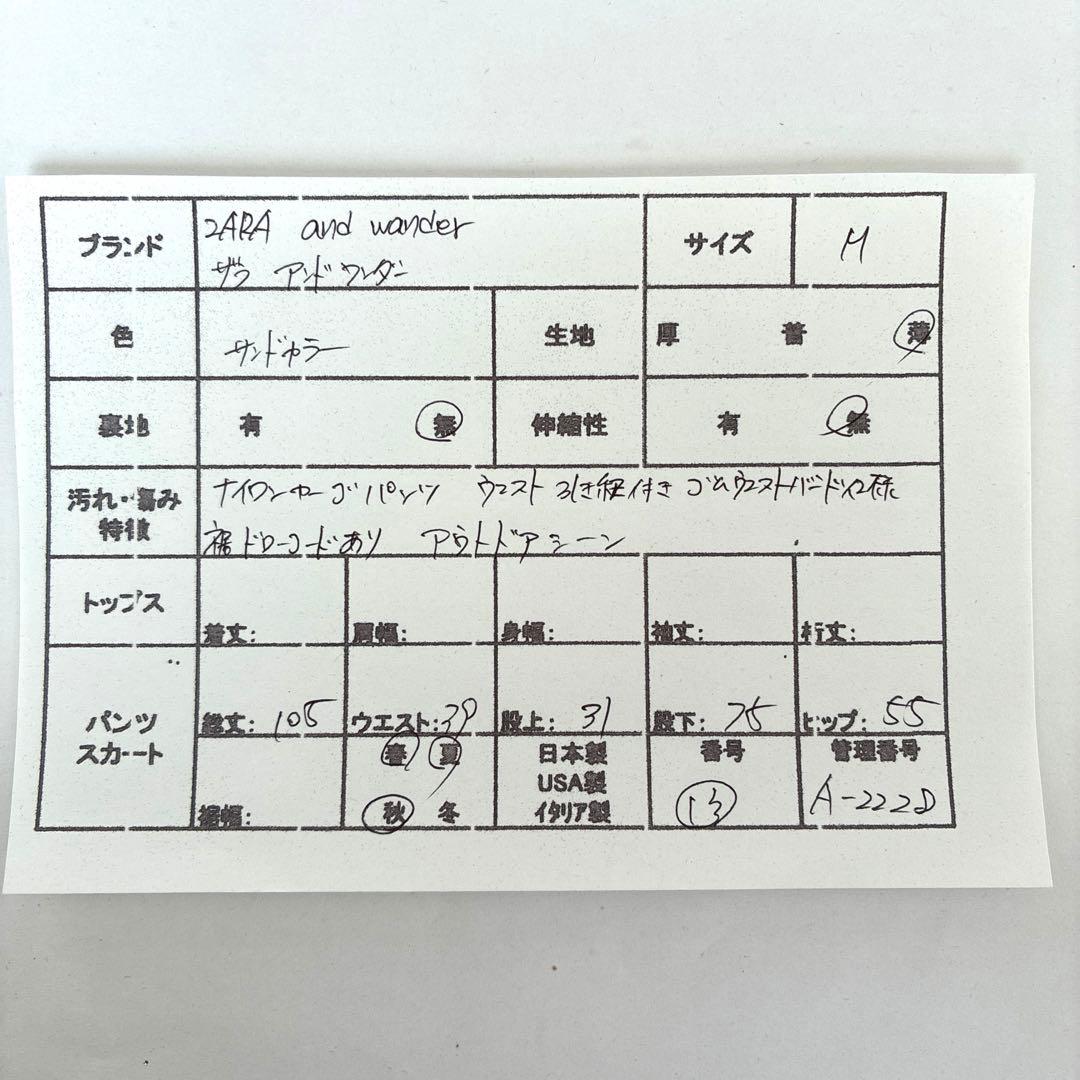 ブランド ZARA and wander サイズ M
ザラ アンドワンダー
色 サンドカラー 生地 厚 普 薄
裏地 有 無 伸縮性 有 無
汚れ・傷み ナイロンカーゴパンツ ウエスト引き紐付き ゴムウエストバンド仕様
特徴 裾ドローコードあり アウトドアシーン
トップス 着丈: 肩幅: 身幅: 袖丈: 裄丈:
パンツ 総丈: 105 ウエスト: 39 股上: 31 股下: 75 ヒップ: 55
スカート 裾幅: 春 夏 日本製 番号 管理番号
USA製
秋 冬 イタリア製 13 A-2228